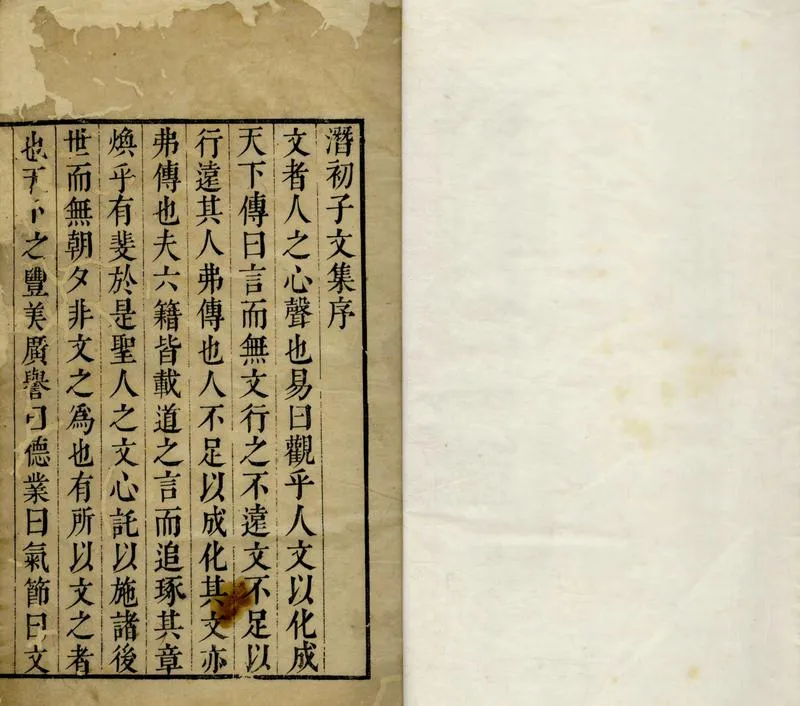 潛初子文集序
文者人之心聲也易曰觀乎人文以化成
天下傳曰言而無文行之不遠文不足以
行遠其人弗傳也人不足以成化其文亦
弗傳也夫六籍皆載道之言而追琢其章
煥乎有斐於是聖人之文心託以施諸後
世而無朝夕非文之為也有所以文之者
也天下之豐美廣譽曰德業曰氣節曰文